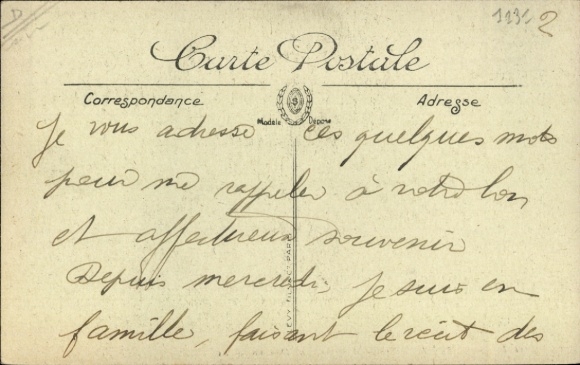 1131 2
Carte Postale
Correspondance
Adresse
Modèle Déposé
Je vous adresse ces quelques mots
pour me rappeler à votre bon
et affectueux souvenir
Depuis mercredi, je suis en
famille, faisant le récit des
LEVY FILS ET PARIS